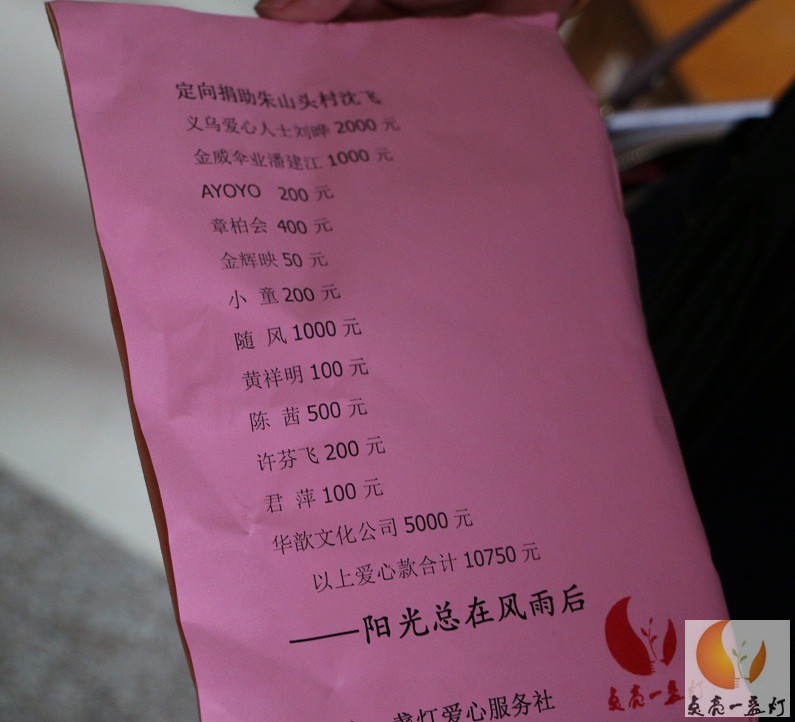 定向捐助朱山头村沈飞
义乌爱心人士刘晔 2000 元
金威伞业潘建江 1000 元
AYOYO 200 元
章柏会 400 元
金辉映 50 元
小 童 200 元
随 风 1000 元
黄祥明 100 元
陈 茜 500 元
许芬飞 200 元
君 萍 100 元
华歆文化公司 5000 元
以上爱心款合计 10750 元
——阳光总在风雨后
盏灯爱心服务社
点亮一盏灯
点亮一盏灯